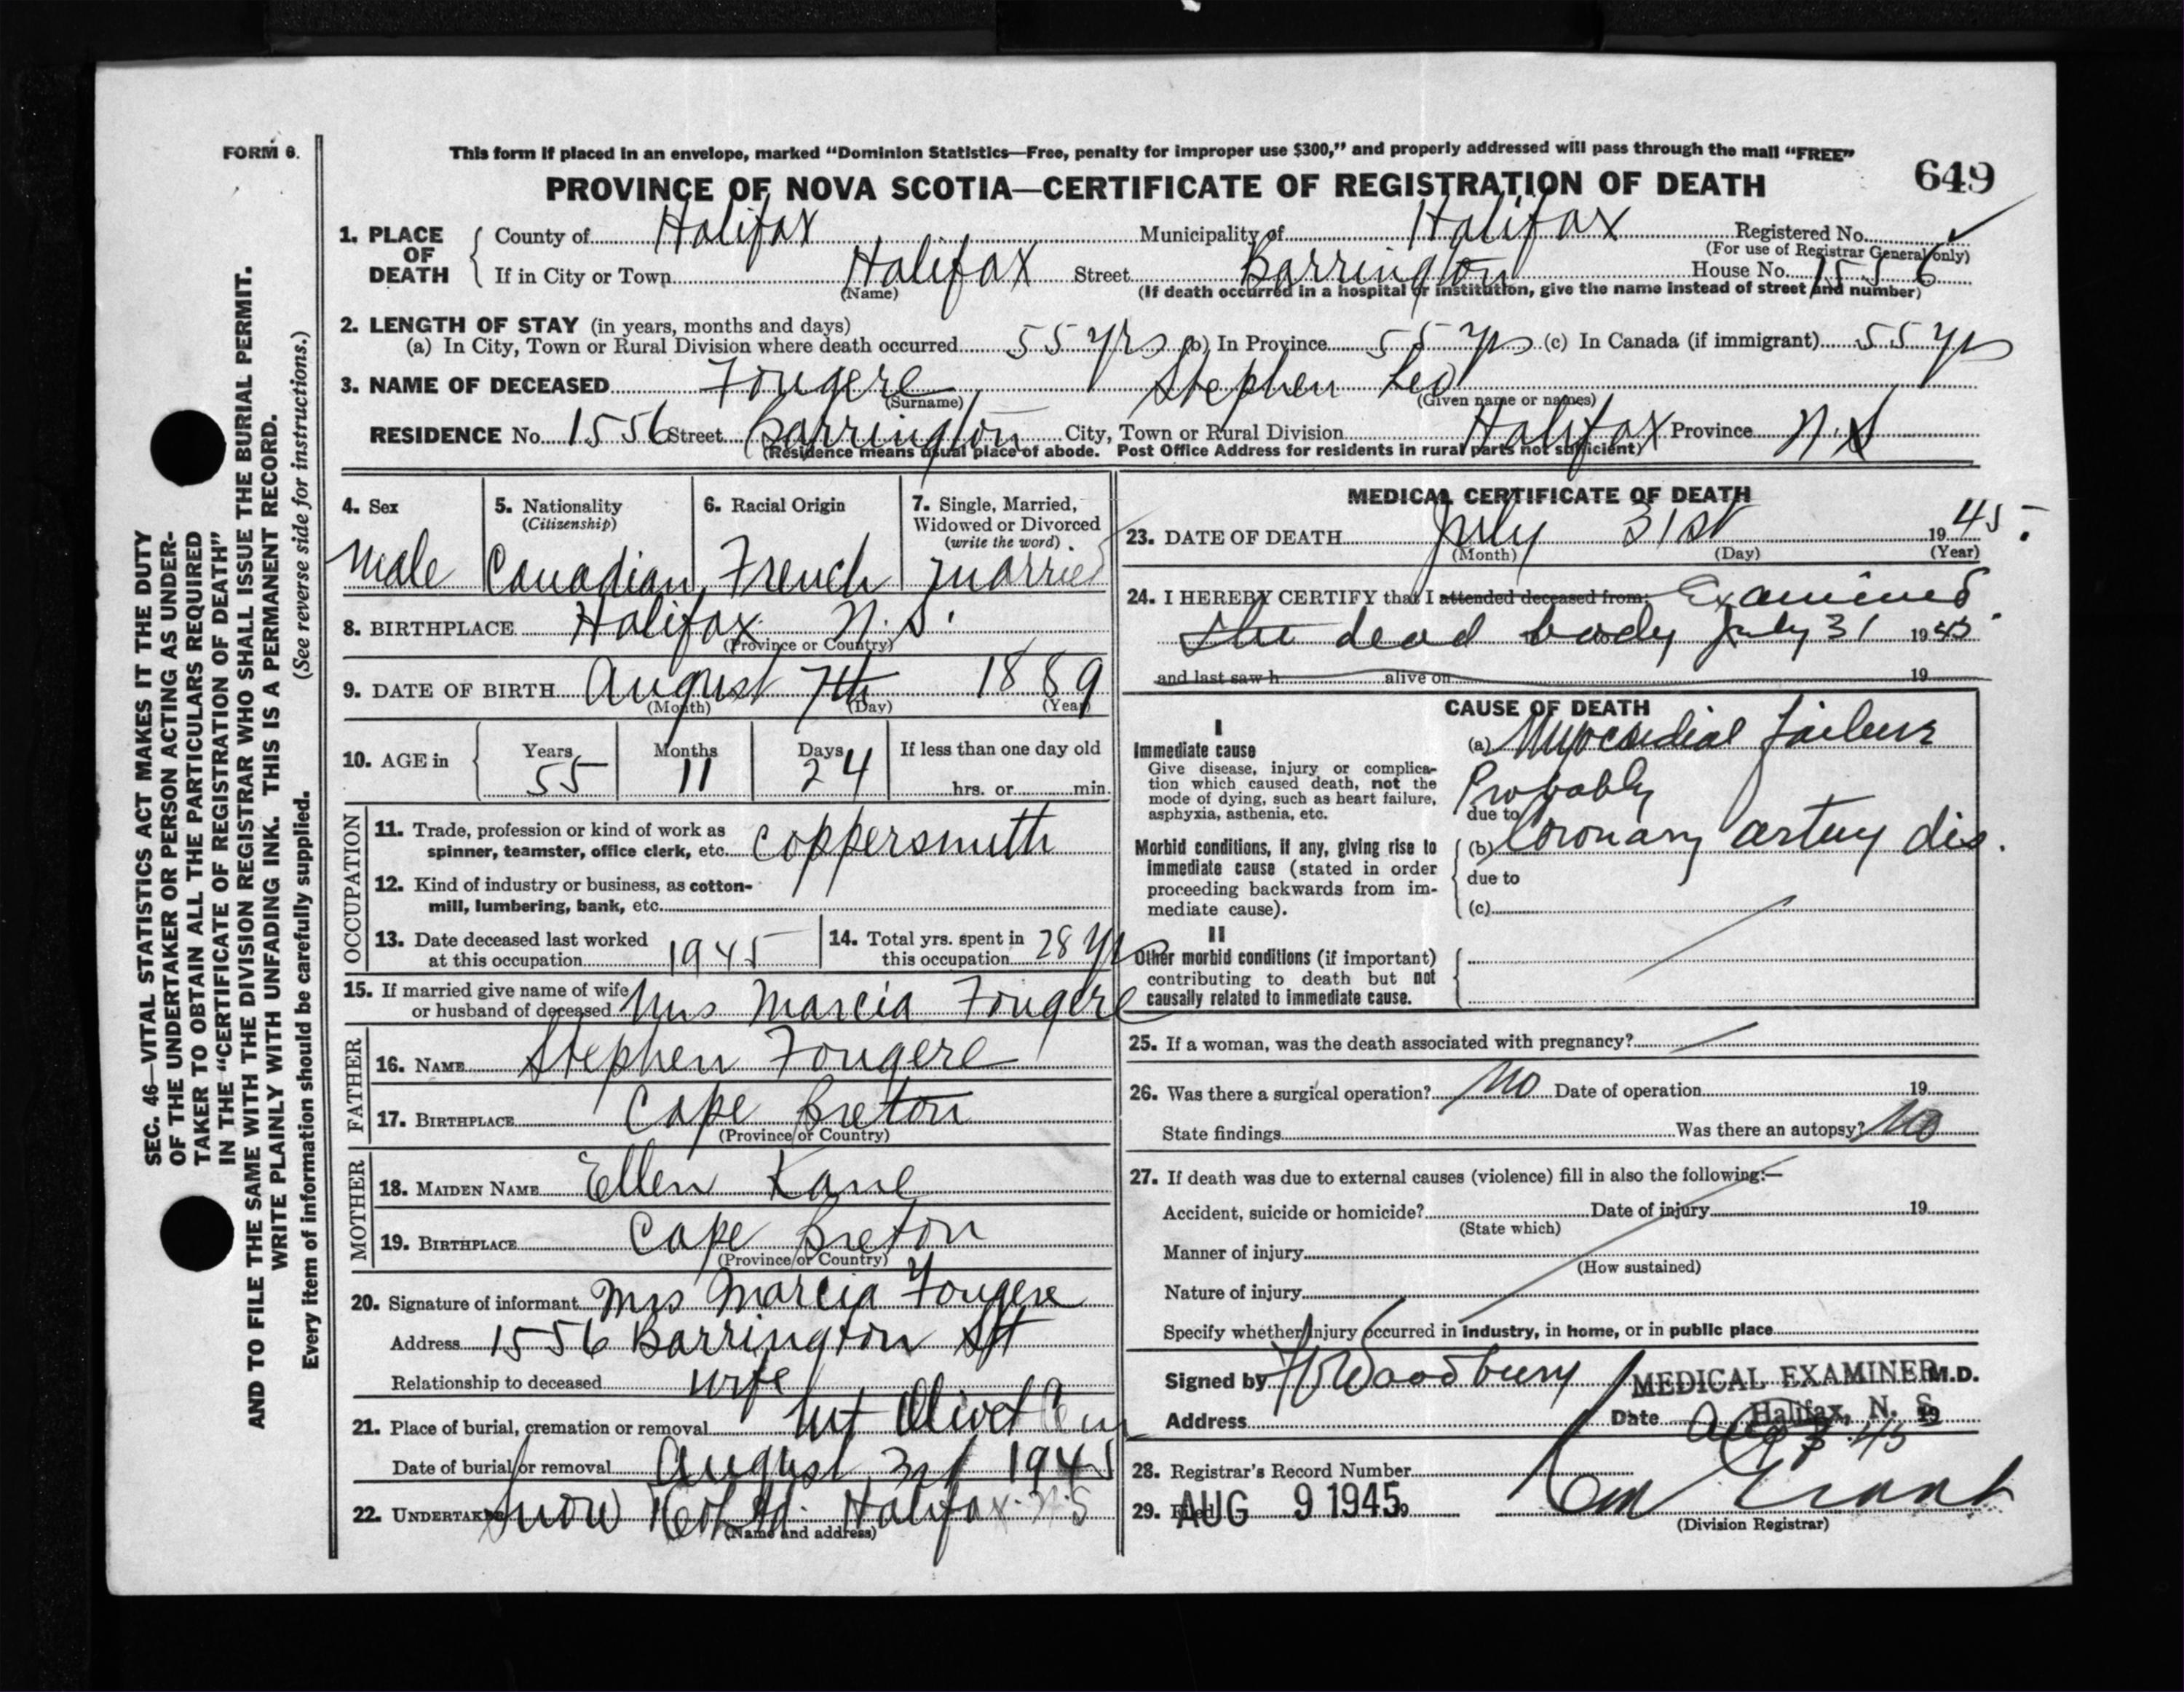 FORM 6.
This form if placed in an envelope, marked “Dominion Statistics—Free, penalty for improper use $300,” and properly addressed will pass through the mail “FREE”
PROVINCE OF NOVA SCOTIA—CERTIFICATE OF REGISTRATION OF DEATH
649
1. PLACE OF DEATH
County of Halifax Municipality of Halifax Registered No.
(For use of Registrar General only)
If in City or Town Halifax Street Barrington House No. 1556
(Name) (If death occurred in a hospital or institution, give the name instead of street and number)
2. LENGTH OF STAY (in years, months and days)
(a) In City, Town or Rural Division where death occurred 55 yrs (b) In Province 55 yrs (c) In Canada (if immigrant) 55 yrs
3. NAME OF DECEASED Fougere, Stephen Leo
(Surname) (Given name or names)
RESIDENCE No. 1556 Street Barrington City, Town or Rural Division Halifax Province N.S
(Residence means usual place of abode. Post Office Address for residents in rural parts not sufficient)
4. Sex
Male
5. Nationality
(Citizenship)
Canadian
6. Racial Origin
French
7. Single, Married,
Widowed or Divorced
(write the word)
Married
8. BIRTHPLACE Halifax N.S.
(Province or Country)
9. DATE OF BIRTH August 7th 1889
(Month) (Day) (Year)
10. AGE in
Years Months Days If less than one day old
55 11 24 hrs. or min.
OCCUPATION
11. Trade, profession or kind of work as
spinner, teamster, office clerk, etc. Coppersmith
12. Kind of industry or business, as cotton-
mill, lumbering, bank, etc.
13. Date deceased last worked
at this occupation 1945
14. Total yrs. spent in
this occupation 28 yrs
15. If married give name of wife
or husband of deceased Mrs Marcia Fougere
FATHER
16. NAME Stephen Fougere
17. BIRTHPLACE Cape Breton
(Province or Country)
MOTHER
18. MAIDEN NAME Ellen Kane
19. BIRTHPLACE Cape Breton
(Province or Country)
20. Signature of informant Mrs Marcia Fougere
Address 1556 Barrington St
Relationship to deceased wife
21. Place of burial, cremation or removal Mt Olivet Cem
Date of burial or removal August 3rd 1945
22. UNDERTAKER Snow & Co Ltd. Halifax. N.S
(Name and address)
MEDICAL CERTIFICATE OF DEATH
23. DATE OF DEATH July 31st 1945.
(Month) (Day) (Year)
24. I HEREBY CERTIFY that I attended deceased from: Examined
the dead body July 31 1945
and last saw h alive on 19
CAUSE OF DEATH
I
Immediate cause
Give disease, injury or complica-
tion which caused death, not the
mode of dying, such as heart failure,
asphyxia, asthenia, etc.
(a) Myocardial failure
Probably
due to
Morbid conditions, if any, giving rise to
immediate cause (stated in order
proceeding backwards from im-
mediate cause).
(b) Coronary artery dis.
due to
(c)
II
Other morbid conditions (if important)
contributing to death but not
causally related to immediate cause.
25. If a woman, was the death associated with pregnancy?
26. Was there a surgical operation? No Date of operation 19
State findings Was there an autopsy? No
27. If death was due to external causes (violence) fill in also the following:—
Accident, suicide or homicide? Date of injury 19
(State which)
Manner of injury
(How sustained)
Nature of injury
Specify whether injury occurred in industry, in home, or in public place
Signed by Woodbury MEDICAL EXAMINER M.D.
Address Date Halifax, N. S. 19
28. Registrar's Record Number
29. Filed AUG 9 1945 19
(Division Registrar)
SEC. 46—VITAL STATISTICS ACT MAKES IT THE DUTY
OF THE UNDERTAKER OR PERSON ACTING AS UNDER-
TAKER TO OBTAIN ALL THE PARTICULARS REQUIRED
IN THE “CERTIFICATE OF REGISTRATION OF DEATH”
AND TO FILE THE SAME WITH THE DIVISION REGISTRAR WHO SHALL ISSUE THE BURIAL PERMIT.
WRITE PLAINLY WITH UNFADING INK. THIS IS A PERMANENT RECORD.
Every item of information should be carefully supplied. (See reverse side for instructions.)